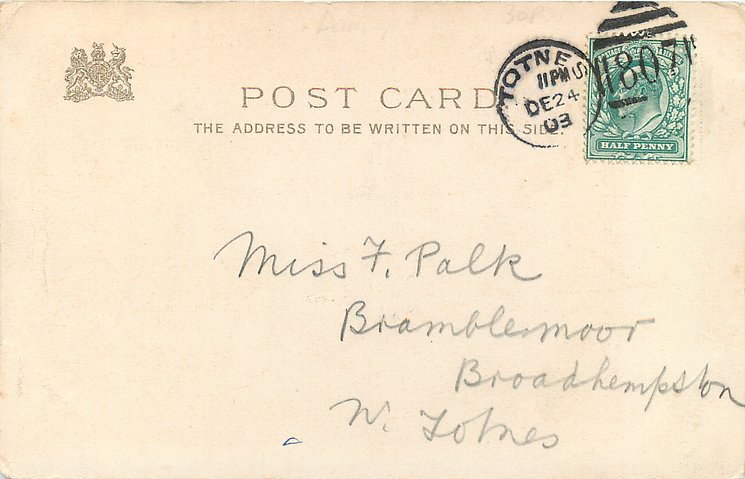 POST CARD
THE ADDRESS TO BE WRITTEN ON THIS SIDE
TOTNES
11PM
DE 24
03
807
HALF PENNY
Miss F. Palk
Bramblemoor
Broadhempston
Nr. Totnes